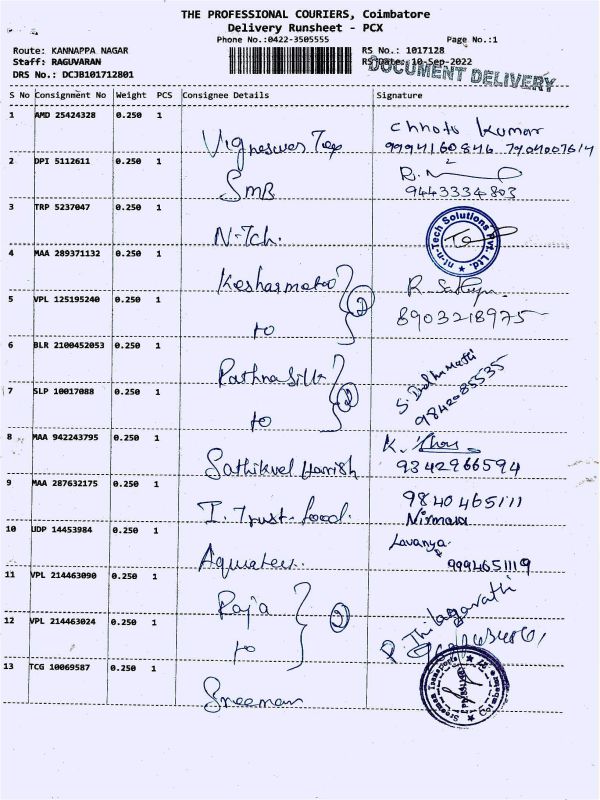 THE PROFESSIONAL COURIERS, Coimbatore
Delivery Runsheet - PCX
Phone No.:0422-3505555 Page No.:1
Route: KANNAPPA NAGAR RS No.: 1017128
Staff: RAGUVARAN RS Date: 10-Sep-2022
DOCUMENT DELIVERY
DRS No.: DCJB101712801
S No Consignment No Weight PCS Consignee Details Signature
1 AMD 25424328 0.250 1 Chhotu Kumar
Vigneswar Tex
2 DPI 5112611 0.250 1
SMB 9443334803
3 TRP 5237047 0.250 1
N-Tch. nt-n-Tech Solutions Pvt. Ltd.
4 MAA 289371132 0.250 1
5 VPL 125195240 0.250 1 2
to 8903218975
6 BLR 2100452053 0.250 1
Rathna Silk
7 SLP 10017088 0.250 1 2 9842085535
to
8 MAA 942243795 0.250 1
Sathikvel Harrish 9342966594
9 MAA 287632175 0.250 1 9840465111
I. Trust-food. Nirmala
10 UDP 14453984 0.250 1 Lavanya.
9994651119
11 VPL 214463090 0.250 1
Raja 2 Thilagavathi
12 VPL 214463024 0.250 1
to
13 TCG 10069587 0.250 1
Sreeman